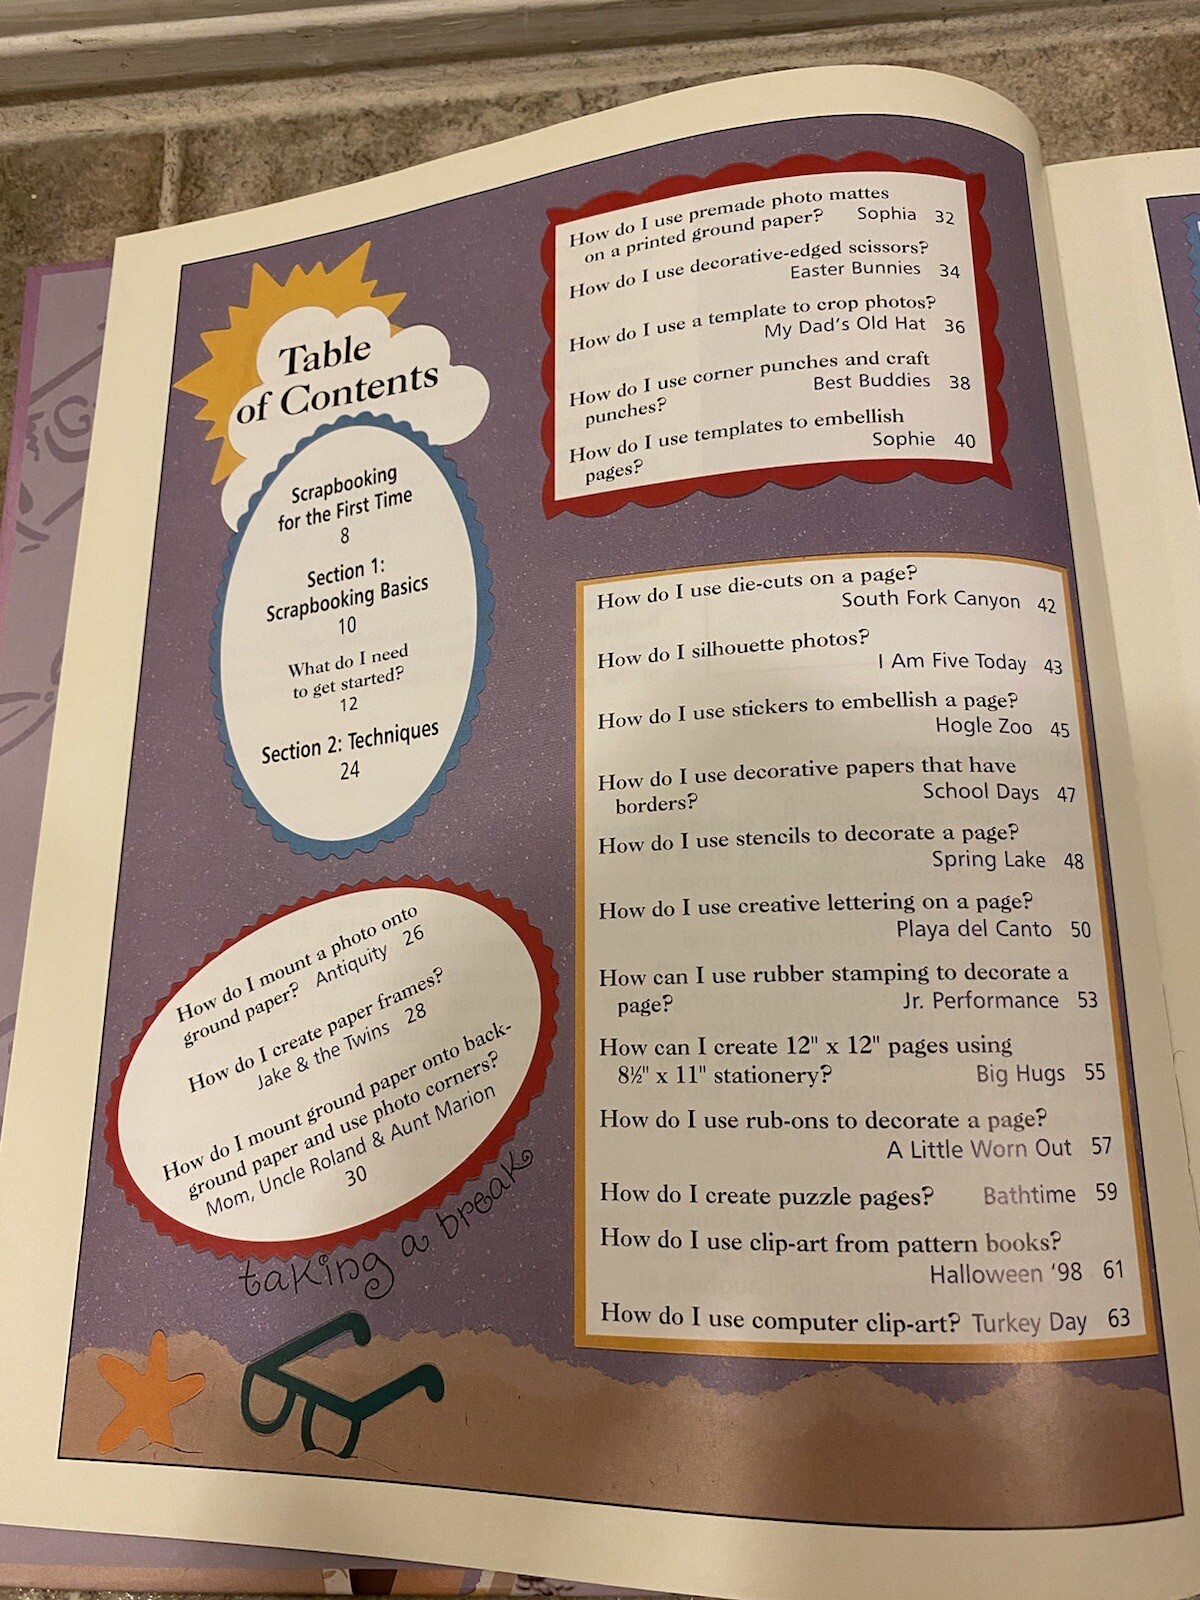 Table
of Contents
Scrapbooking
for the First Time
8
Section 1:
Scrapbooking Basics
10
What do I need
to get started?
12
Section 2: Techniques
24
How do I mount a photo onto
ground paper? Antiquity 26
How do I create paper frames?
Jake & the Twins 28
How do I mount ground paper onto back-
ground paper and use photo corners?
Mom, Uncle Roland & Aunt Marion
30
taking a break
How do I use premade photo mattes
on a printed ground paper? Sophia 32
How do I use decorative-edged scissors?
Easter Bunnies 34
How do I use a template to crop photos?
My Dad's Old Hat 36
How do I use corner punches and craft
punches? Best Buddies 38
How do I use templates to embellish
pages? Sophie 40
How do I use die-cuts on a page?
South Fork Canyon 42
How do I silhouette photos?
I Am Five Today 43
How do I use stickers to embellish a page?
Hogle Zoo 45
How do I use decorative papers that have
borders? School Days 47
How do I use stencils to decorate a page?
Spring Lake 48
How do I use creative lettering on a page?
Playa del Canto 50
How can I use rubber stamping to decorate a
page? Jr. Performance 53
How can I create 12" x 12" pages using
8½" x 11" stationery? Big Hugs 55
How do I use rub-ons to decorate a page?
A Little Worn Out 57
How do I create puzzle pages? Bathtime 59
How do I use clip-art from pattern books?
Halloween '98 61
How do I use computer clip-art? Turkey Day 63